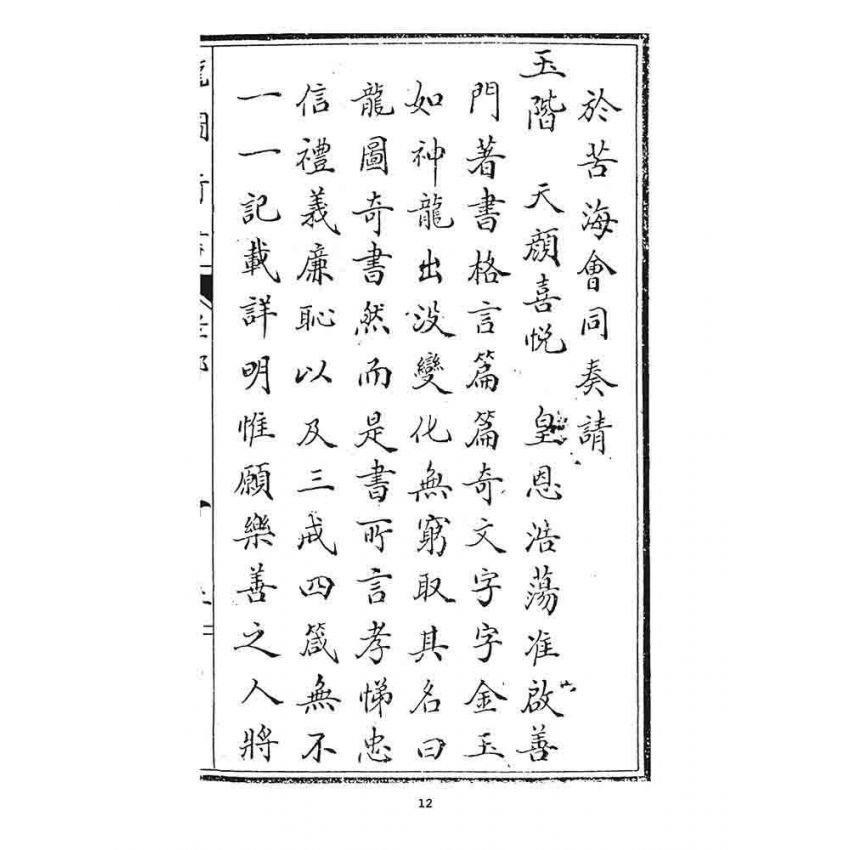 於苦海會同奏請
玉階　天顏喜悅　皇恩浩蕩准啟善
門著書格言篇篇奇文字字金玉
如神龍出没變化無窮取其名曰
龍圖奇書然而是書所言孝悌忠
信禮義廉恥以及三戒四箴無不
一一記載詳明惟願樂善之人將
12